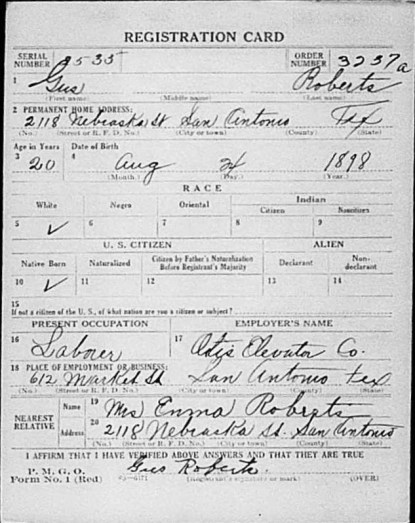 REGISTRATION CARD
SERIAL NUMBER 2535 ORDER NUMBER 3237a
1 Gus Roberts
(First name) (Middle name) (Last name)
2 PERMANENT HOME ADDRESS:
2118 Nebraska St. San Antonio Tex
(No.) (Street or R. F. D. No.) (City or town) (County) (State)
Age in Years Date of Birth
3 20 4 Aug 24 1898
(Month.) (Day.) (Year.)
RACE
White Negro Oriental Indian
Citizen Noncitizen
5 ✓ 6 7 8 9
U. S. CITIZEN ALIEN
Native Born Naturalized Citizen by Father's Naturalization Before Registrant's Majority Declarant Non-declarant
10 ✓ 11 12 13 14
15
If not a citizen of the U. S., of what nation are you a citizen or subject?
PRESENT OCCUPATION EMPLOYER'S NAME
16 Laborer 17 Otis Elevator Co.
18 PLACE OF EMPLOYMENT OR BUSINESS:
612 Market St San Antonio Tex
(No.) (Street or R. F. D. No.) (City or town) (County) (State)
NEAREST RELATIVE Name 19 Mrs Emma Roberts
Address 20 2118 Nebraska St. San Antonio
(No.) (Street or R. F. D. No.) (City or town) (County) (State)
I AFFIRM THAT I HAVE VERIFIED ABOVE ANSWERS AND THAT THEY ARE TRUE
P. M. G. O. Gus Roberts.
Form No. 1 (Red) (Registrant's signature or mark) (OVER)